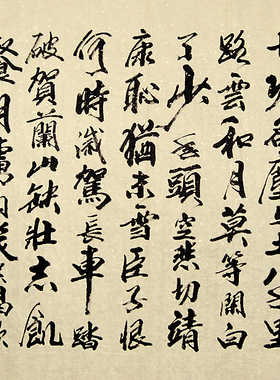 十功名塵土八千里
路雲和月莫等閑白
了少年頭空悲切靖
康恥猶未雪臣子恨
何時滅駕長車踏
破賀蘭山缺壯志飢
餐胡虜肉笑談渴飲